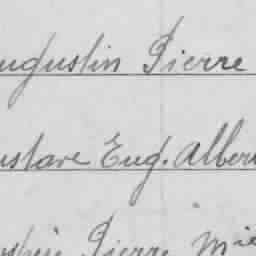 ugustin Pierre
ustave Eug. Alber
Pierre Mie